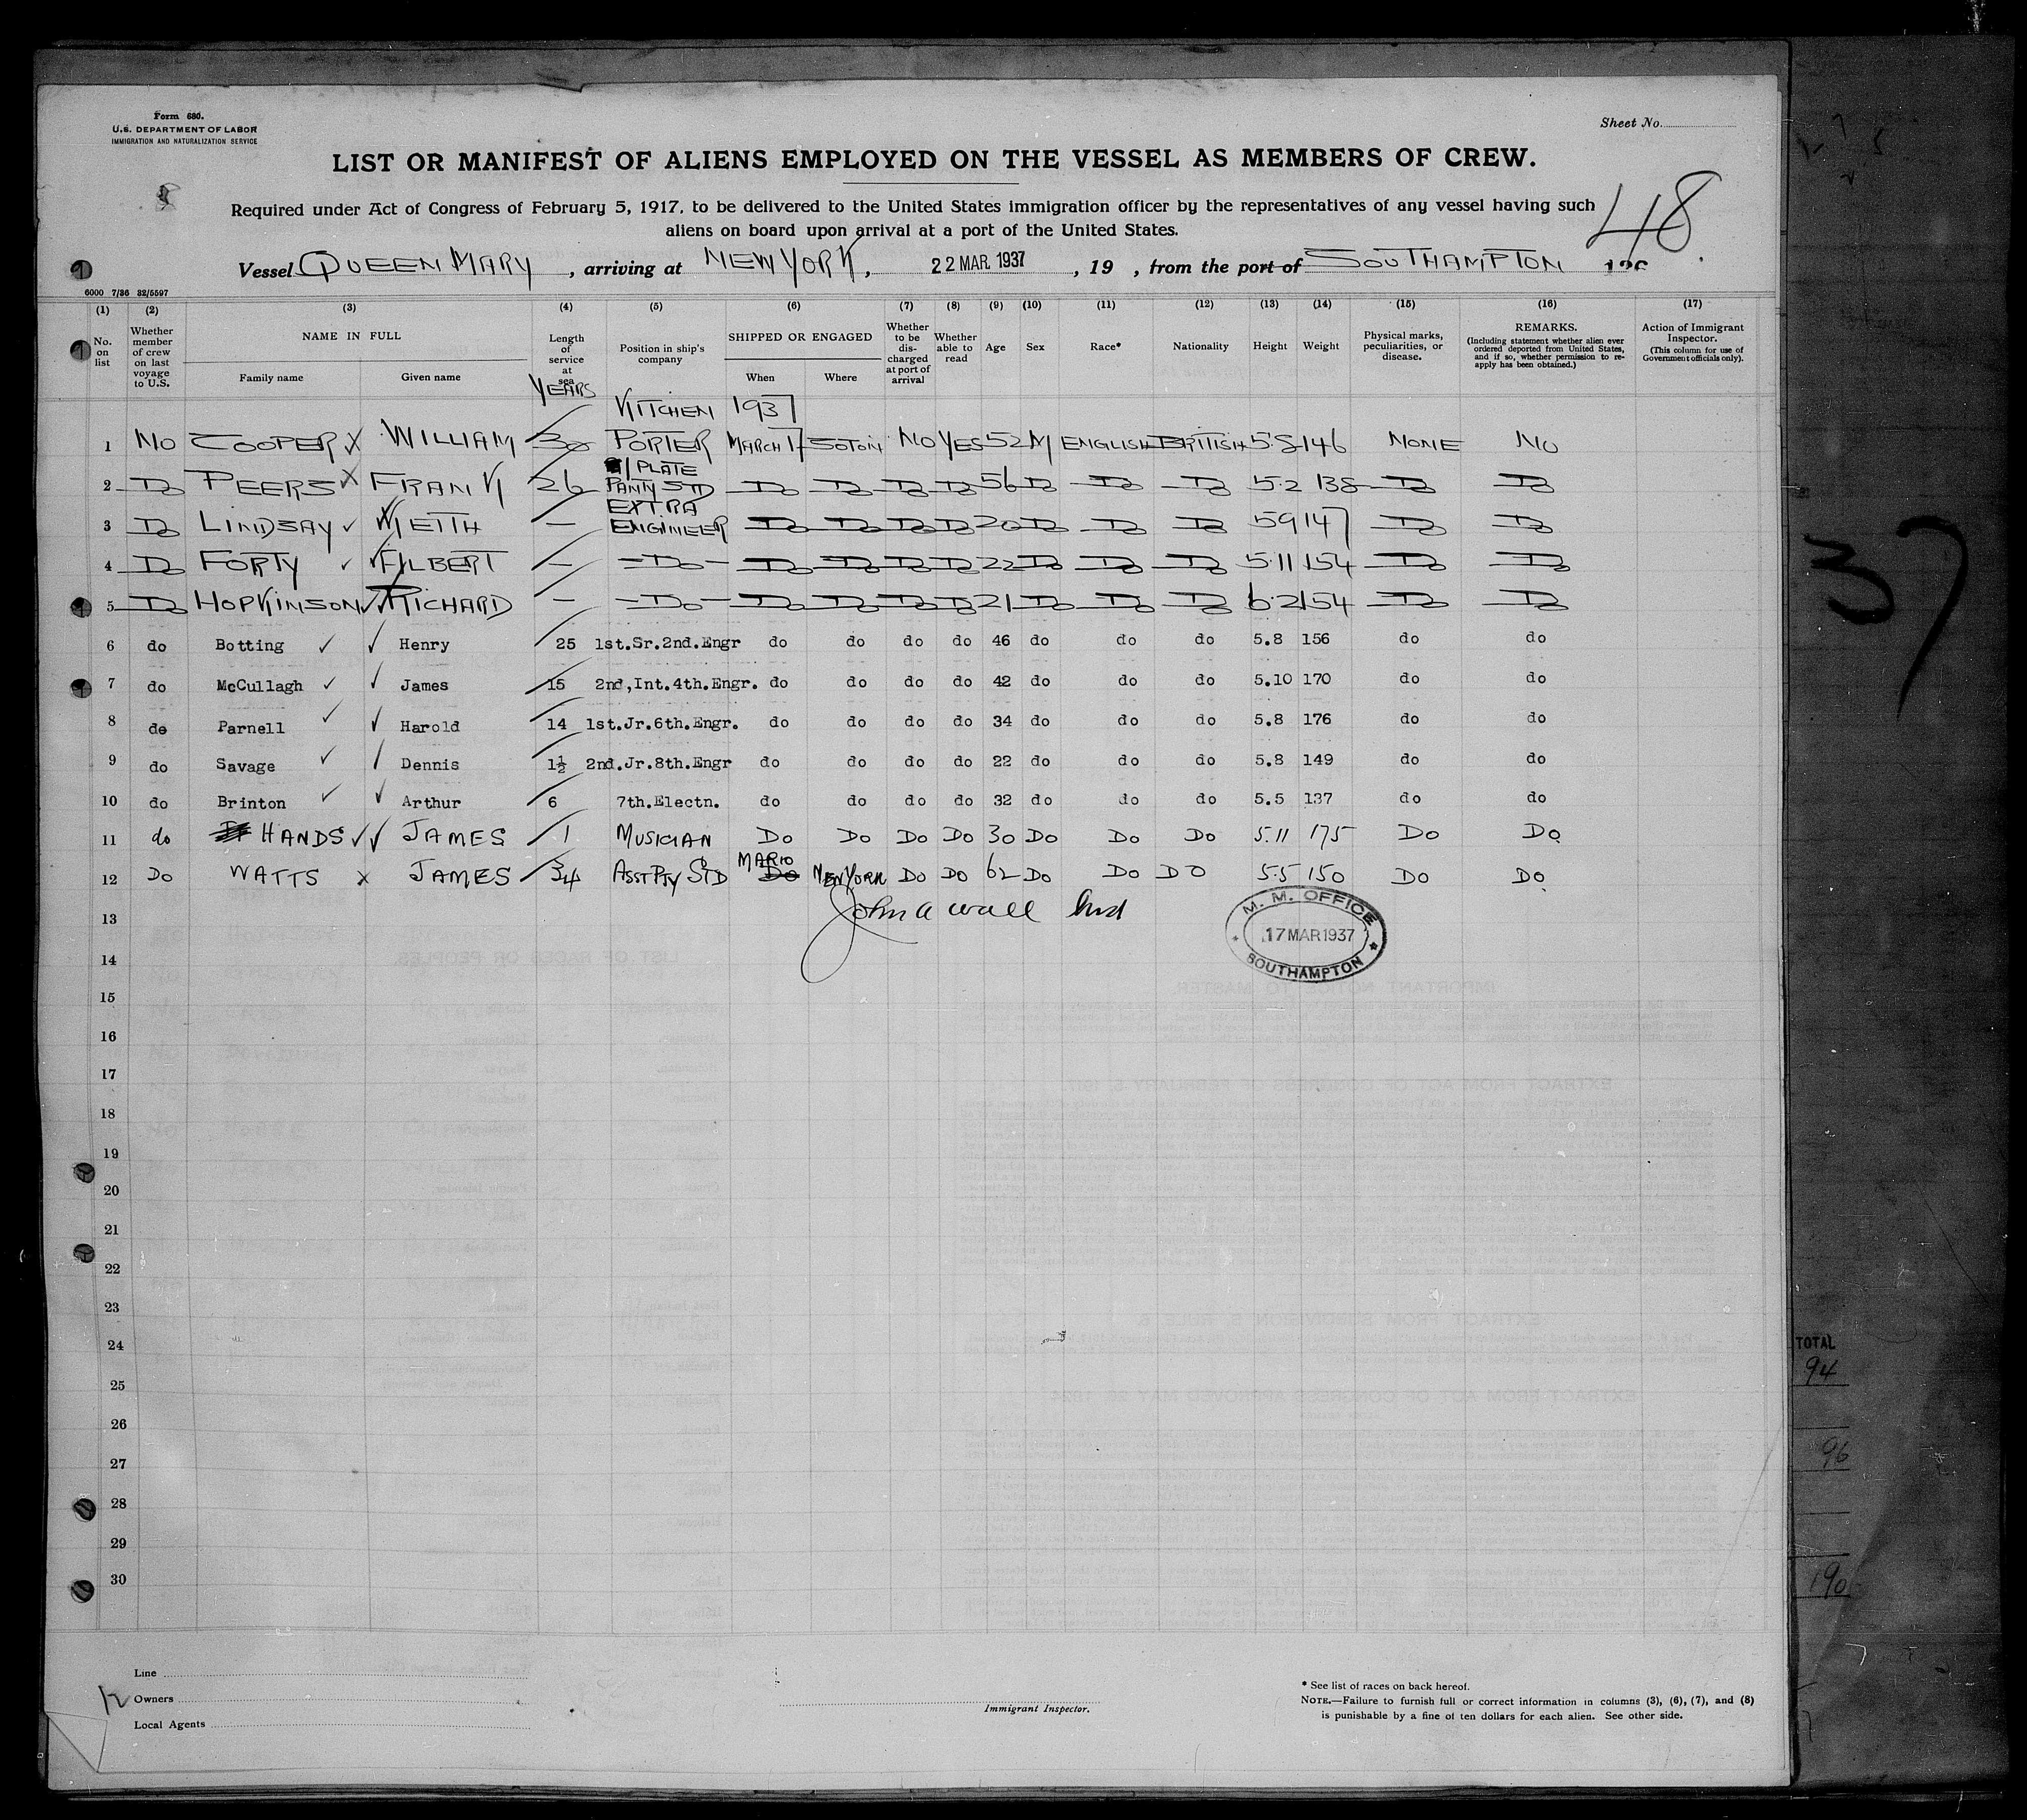 Form 680.
U.S. DEPARTMENT OF LABOR
IMMIGRATION AND NATURALIZATION SERVICE
Sheet No.
LIST OR MANIFEST OF ALIENS EMPLOYED ON THE VESSEL AS MEMBERS OF CREW.
48
Required under Act of Congress of February 5, 1917, to be delivered to the United States immigration officer by the representatives of any vessel having such
aliens on board upon arrival at a port of the United States.
Vessel QUEEN MARY, arriving at NEW YORK, 22 MAR 1937, 19 , from the port of SOUTHAMPTON
6000 7/36 32/5597
(1) (2) (3) (4) (5) (6) (7) (8) (9) (10) (11) (12) (13) (14) (15) (16) (17)
No. on list
Whether member of crew on last voyage to U.S.
NAME IN FULL
Family name Given name
Length of service at sea
YEARS
Position in ship's company
SHIPPED OR ENGAGED
When Where
Whether to be discharged at port of arrival
Whether able to read
Age Sex Race* Nationality Height Weight
Physical marks, peculiarities, or disease.
REMARKS.
(Including statement whether alien ever ordered deported from United States, and if so, whether permission to re-apply has been obtained.)
Action of Immigrant Inspector.
(This column for use of Government officials only).
KITCHEN 1937
1 NO COOPER X WILLIAM 30 PORTER MARCH 17 SOTON NO YES 52 M ENGLISH BRITISH 5.8 146 NONE NO
PLATE
2 Do PEERS X FRANK 26 PANTY STD Do Do Do Do 56 Do Do Do 5.2 138 Do Do
EXTRA
3 Do LINDSAY ✓ KEITH — ENGINEER Do Do Do Do 20 Do Do Do 59 147 Do Do
4 Do FORTY ✓ ALBERT — -Do- Do Do Do Do 22 Do Do Do 5.11 154 Do Do
5 Do HOPKINSON ✓ RICHARD — -Do- Do Do Do Do 21 Do Do Do 6.2 154 Do Do
6 do Botting ✓ ✓ Henry 25 1st.Sr.2nd.Engr do do do do 46 do do do 5.8 156 do do
7 do McCullagh ✓ ✓ James 15 2nd,Int.4th.Engr. do do do do 42 do do do 5.10 170 do do
8 do Parnell ✓ ✓ Harold 14 1st.Jr.6th.Engr. do do do do 34 do do do 5.8 176 do do
9 do Savage ✓ Dennis 1½ 2nd.Jr.8th.Engr do do do do 22 do do do 5.8 149 do do
10 do Brinton ✓ ✓ Arthur 6 7th.Electn. do do do do 32 do do do 5.5 137 do do
11 do HANDS ✓✓ JAMES 1 MUSICIAN Do Do Do Do 30 Do Do Do 5.11 175 Do Do
12 Do WATTS x JAMES 34 ASST PTY STD MAR 10 NEW YORK Do Do 62 Do Do Do 5.5 150 Do Do
John A Wall
13
M. M. OFFICE
17 MAR 1937
SOUTHAMPTON
14
15
16
17
18
19
20
21
22
23
24
25
26
27
28
29
30
37
TOTAL
94
96
190
Line
12
Owners
Local Agents
Immigrant Inspector.
* See list of races on back hereof.
NOTE.—Failure to furnish full or correct information in columns (3), (6), (7), and (8)
is punishable by a fine of ten dollars for each alien. See other side.